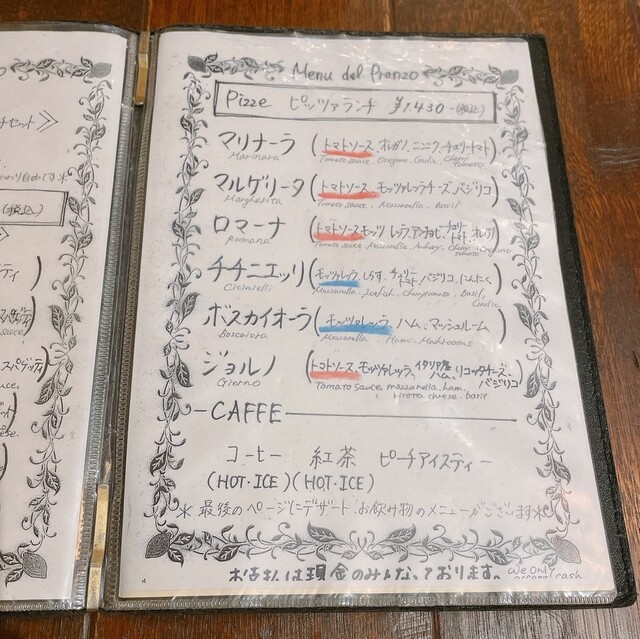 チセット≫
わり自由です※
(税込)
スパゲッティ
Menu del Pranzo
Pizze ピッツァランチ ¥1.430-(税込)
マリナーラ (トマトソース、オレガノ、ニンニク、チェリートマト)
Marinara Tomato sauce, Oregano, Garlic, cherry tomato
マルゲリータ (トマトソース、モッツァレラチーズ、バジリコ)
Margherita Tomato sauce, Mozzarella, Basil
ロマーナ (トマトソース、モッツァレラ、アンチョビ、チェリートマト、オレガノ)
Romana Tomato sauce, Mozzarella, cherry tomato, Oregano
チチニエッリ (モッツァレラ、しらす、チェリートマト、バジリコ、にんにく)
Cicinielli Mozzarella, Basil, Garlic
ボスカイオーラ (モッツァレラ、ハム、マッシュルーム)
Boscaiora Mozzarella, Ham, Mushrooms
ジョルノ (トマトソース、モッツァレラ、イタリア産ハム、リコッタチーズ、バジリコ)
Giorno Tomato sauce, mozzarella, ham, ricotta cheese, basil
CAFFE
コーヒー 紅茶 ピーチアイスティー
(HOT・ICE) (HOT・ICE)
※最後のページにデザート、お飲み物のメニューがございます※
お支払は現金のみとなっております。 We ONLY accept cash